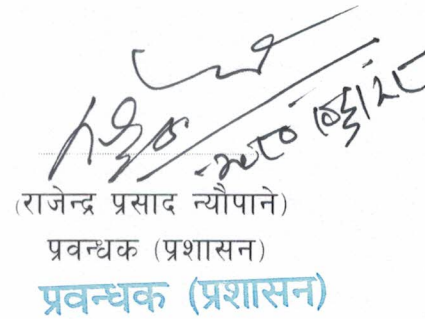 (राजेन्द्र प्रसाद न्यौपाने)
प्रवन्धक (प्रशासन)
प्रवन्धक (प्रशासन)